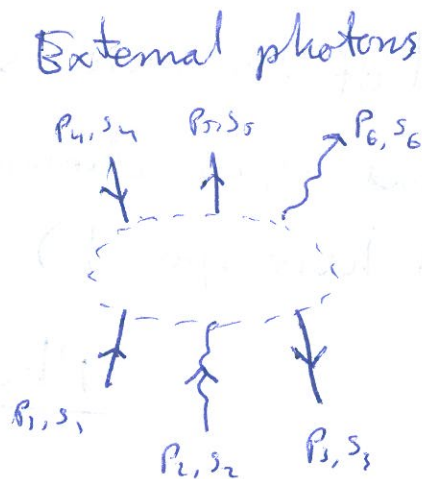 External photons
P4, S4 P5, S5 P6, S6
P1, S1 P2, S2 P3, S3